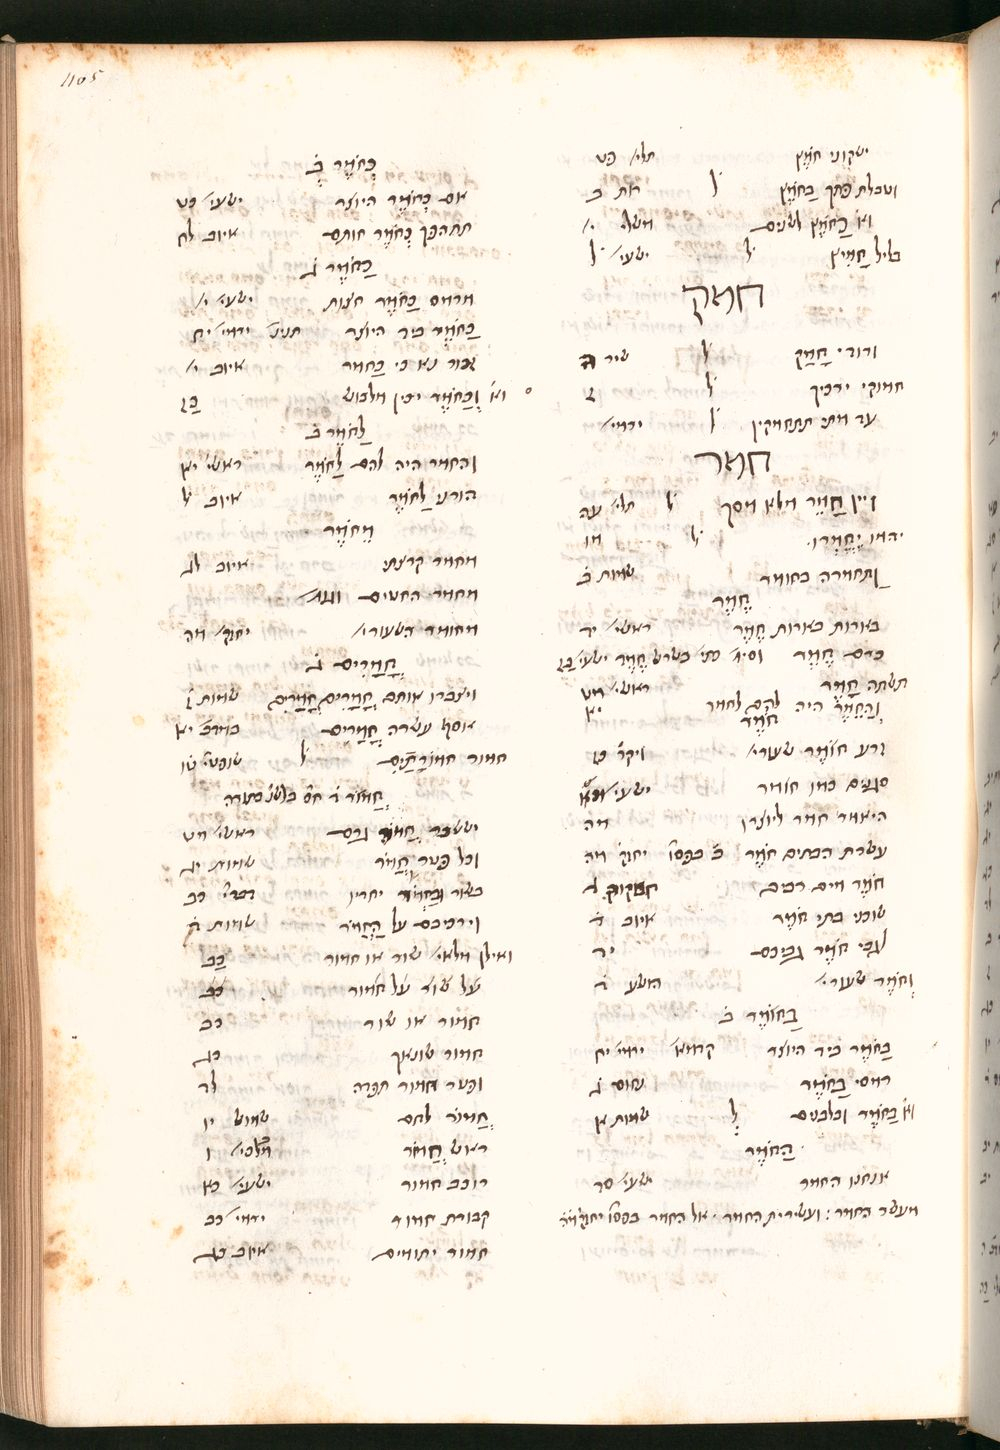 1105
ישקוני חֹמֶץ תלי׳ סט
וטבלת פתך בַחֹמֶץ ל׳ רות ב
וא׳ כַחֹמֶץ לשנים משלי י׳
בליל חָמִיץ ל׳ ישעי׳ ל׳
חמק
ודודי חָמַק ל׳ שיר ה
חמוקי ירכיך ל׳ ז
עד מתי תתחמקין ל׳ ירמי׳
חמר
ויין חָמַר מלא מסך ל׳ תלי׳ עה
יהמו יֶחְמְרוּ ל׳ מו
ותחמרה בחומר שמות ב
חֵמָר
בארות בארות חֵמָר ראשי׳ יד
כרם חֶמֶר
תשתה חָמֶר
וְהַחֵמָר היה להם לחמר יא
חֹמֶר
זרע חֹמֶר שעורי׳ ויקר׳ כז
סגנים כמו חומר ישעי׳
היאמר חמר ליוצרו מה
עשרת הבתים חֹמֶר ב׳ בפסו׳ יחזק׳ מה
חֹמֶר מים רבים חבקוק ג
שוכני בתי חֹמֶר איוב ד
לגבי חֹמֶר גביכם יד
וְחֹמֶר שעורי׳ הושע
בַחֹמֶר ב
כַחֹמֶר ביד היוצר קדמא׳ ירמי׳ יח
רמסי בַחֹמֶר נחום ג
וא׳ בְּחֹמֶר ובלבנים ל׳ שמות א
הַחֹמֶר
אנחנו החמר ישעי׳ סד
מעשר החמר: ועשירית החמר׃ אל החמר בפסו׳ יחזק׳ מה
כְּחֹמֶר ב
אם כְּחֹמֶר היוצר ישעי׳ כט
תתהפך כְּחֹמֶר חותם איוב לח
כַחֹמֶר ג
מרמס כְּחֹמֶר חצות ישעי׳ י׳
כַחֹמֶר ביד היוצר תנינ׳ ירמי׳ יח
זכור נא כי כַחמר איוב י׳
וא׳ וְכַחֹמֶר יכין מלבוש כז
לַחֹמֶר ב
והחמר היה להם לַחֹמֶר ראשי׳ יא
הורני לַחֹמֶר איוב ל׳
מֵחֹמֶר
מחמר קרצתי איוב לג
מחמר החטים
מחומר השעורי׳ יחזק׳ מה
חֳמָרִים ג
ויצברו אותם חֳמָרִים חֳמָרִים שמות ז
אסף עשרה חֳמָרִים במדב׳ יא
חמור חמורָתָיִם ל׳ שופטי׳ טו
יששכר חֲמוֹר גרם ראשי׳ מט
וכל פטר חֲמוֹר שמות יג
בשור ובַחֲמוֹר יחדיו דברי׳ כב
וירכיבם על הַחֲמוֹר שמות ד
ואילן מלאי׳ שור או חמור כב
על שור על חמור כב
חמור או שור כב
חמור שונאך כג
ופטר חמור תפדה לד
חֲמוֹר לחם שמוא׳ יו
ראש חֲמוֹר מלכי׳ ו
רוכב חמור ישעי׳ כא
קבורת חמור ירמי׳ כב
חמור יתומים איוב כד